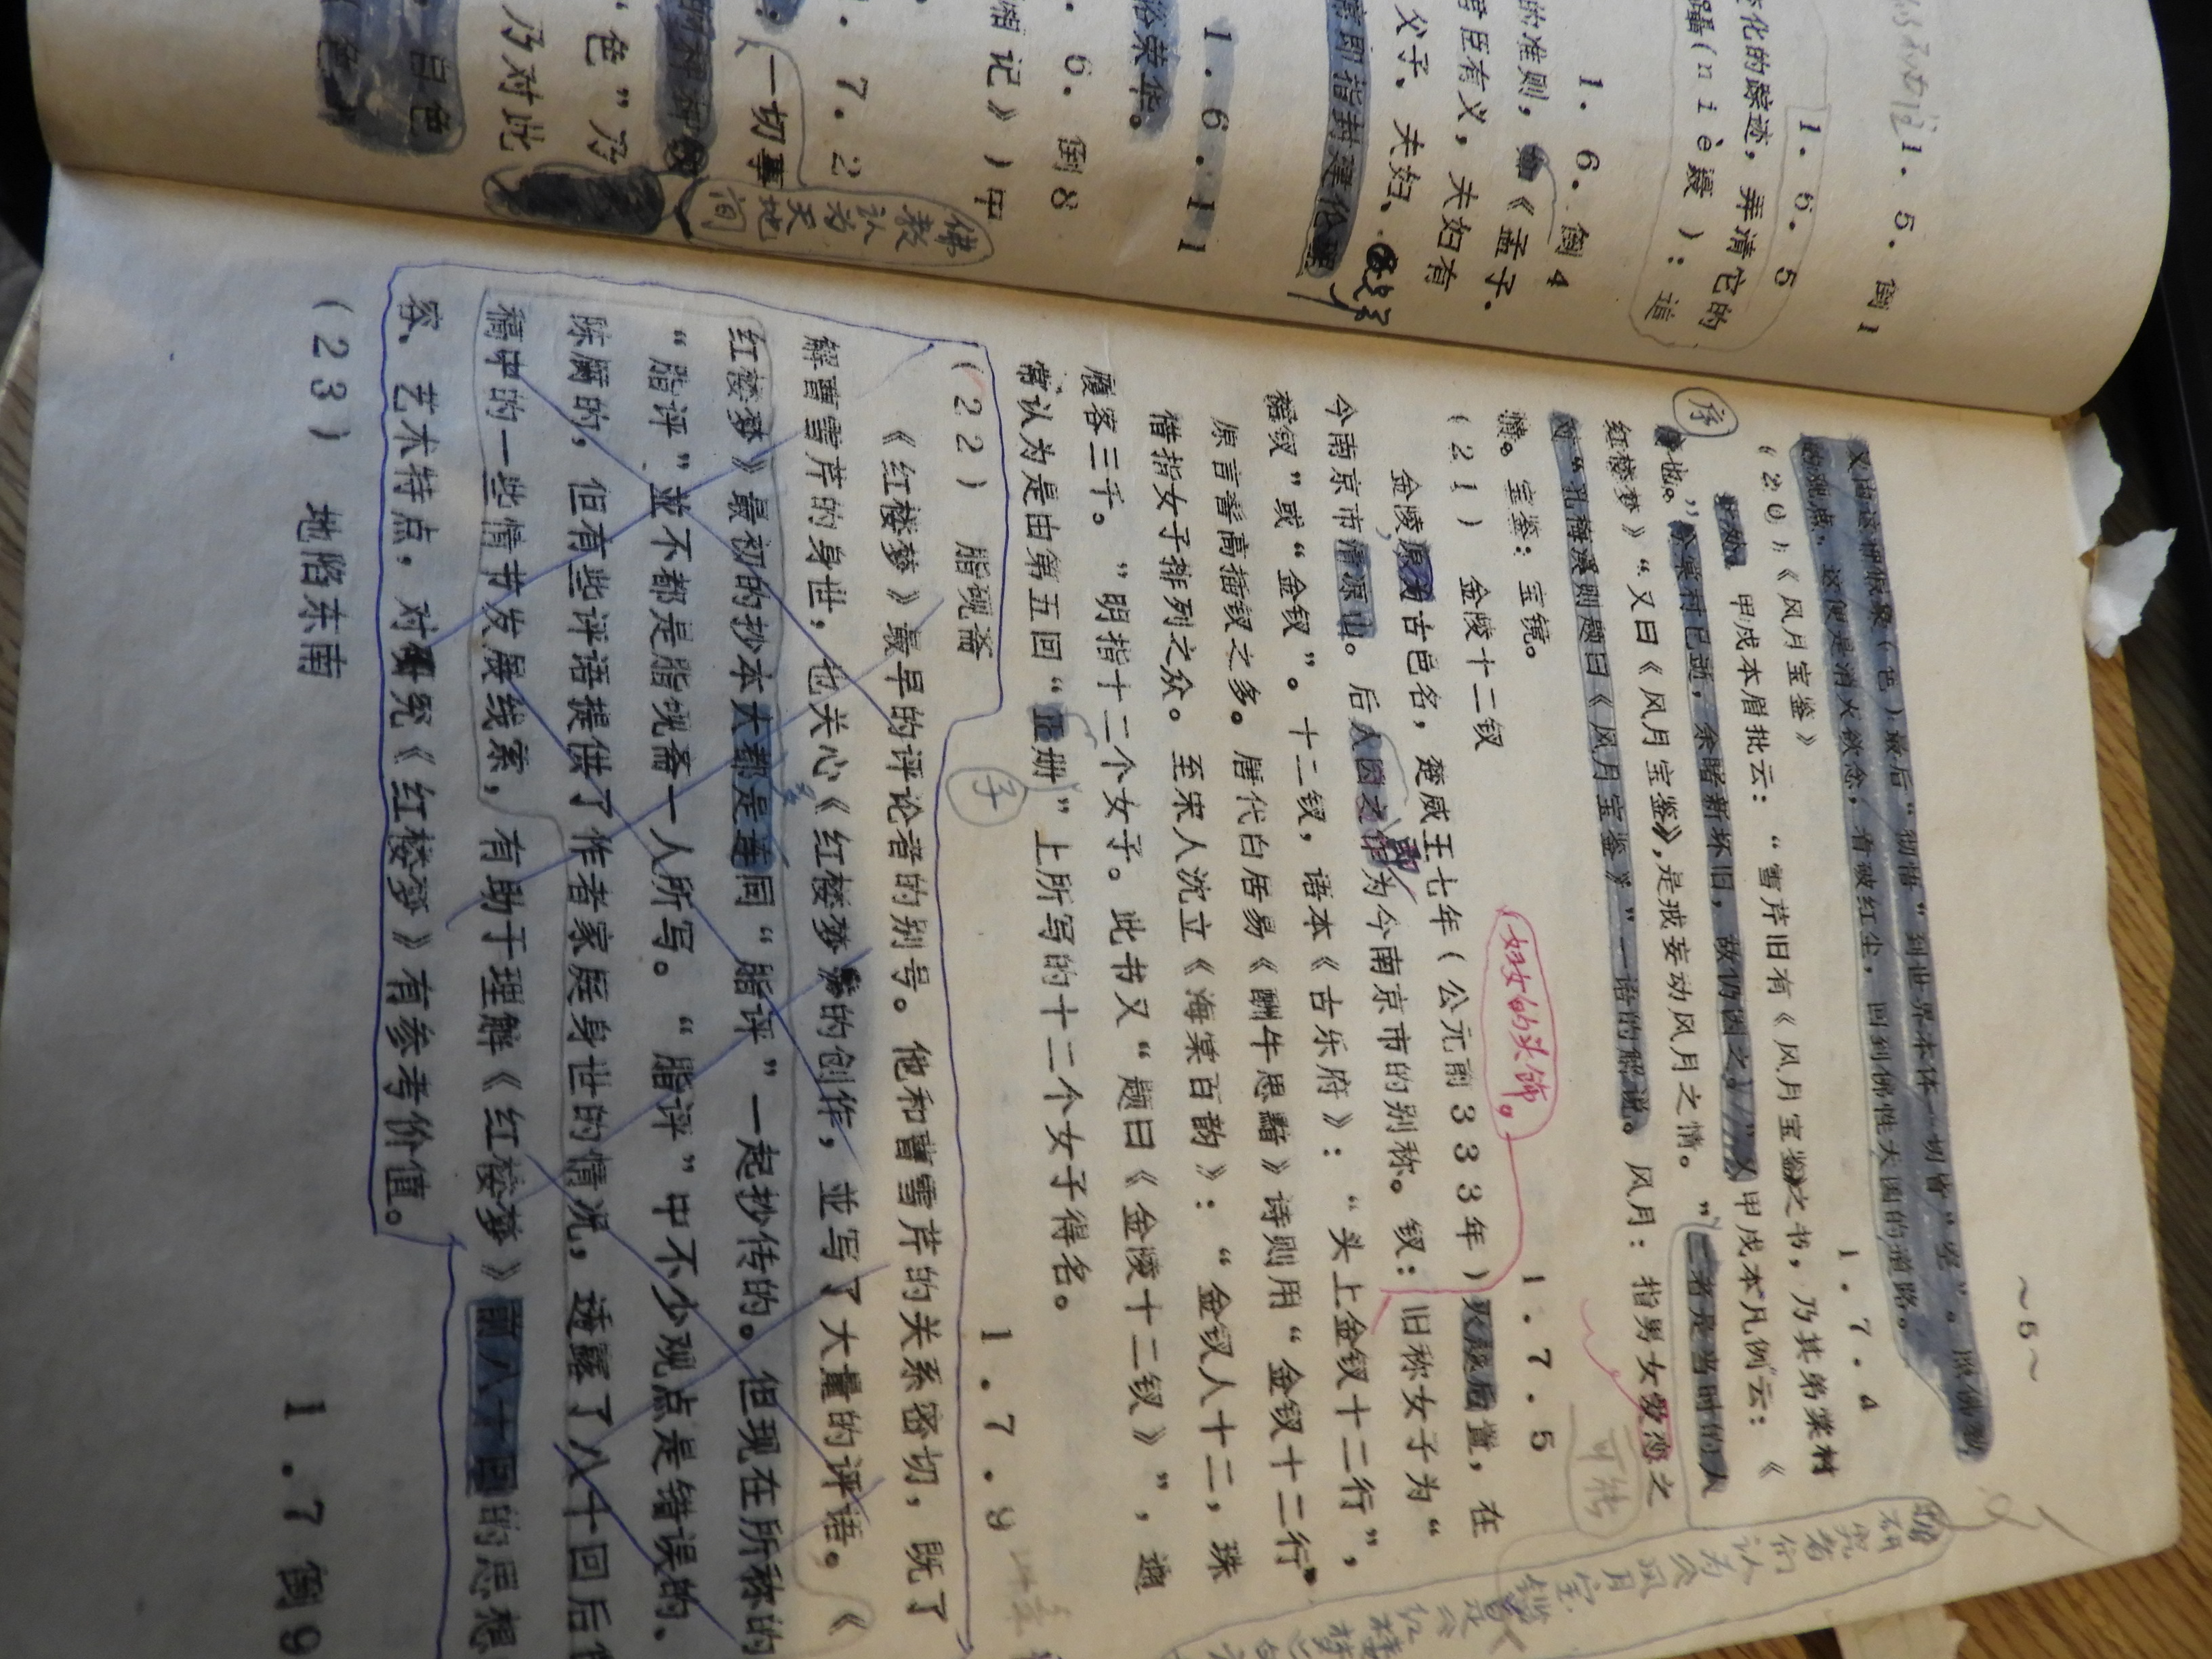 ~5~
又由这种假象（色）最后“彻悟”到世界本体一切皆“空”。
的观点，这便是消灭欲念，看破红尘，回到佛性大园的道路。
（20）《风月宝鉴》 1.7.4
甲戌本眉批云：“雪芹旧有《风月宝鉴》之书，乃其弟棠村
序也。”今棠村已逝，余睹新怀旧，故仍因之。”又甲戌本凡例云：《
红楼梦》“又曰《风月宝鉴》，是戒妄动风月之情。”二者是当时的人
对“孔梅溪则题曰《风月宝鉴》”一语的解说。风月：指男女爱恋之
情。宝鉴：宝镜。
可转
（21） 金陵十二钗 1.7.5
妇女的头饰。
金陵，古邑名，楚威王七年（公元前333年）置，在
今南京市清凉山。后人因之即为今南京市的别称。钗：旧称女子为“
裙钗”或“金钗”。十二钗，语本《古乐府》：“头上金钗十二行”，
原言髻高插钗之多。唐代白居易《酬牛思黯》诗则用“金钗十二行”
借指女子排列之众。至宋人沈立《海棠百韵》：“金钗人十二，珠
履客三千。”明指十二个女子。此书又“题曰《金陵十二钗》”，通
常认为是由第五回“正册子”上所写的十二个女子得名。
（22） 脂砚斋 1.7.9
《红楼梦》最早的评论者的别号。他和曹雪芹的关系密切，既了
解曹雪芹的身世，也关心《红楼梦》的创作，並写了大量的评语。《
红楼梦》最初的抄本大都是连同“脂评”一起抄传的。但现在所称的
“脂评”並不都是脂砚斋一人所写。“脂评”中不少观点是错误的、
陈腐的，但有些评语提供了作者家庭身世的情况，透露了八十回后
稿中的一些情节发展线索，有助于理解《红楼梦》前八十回的思想
容、艺术特点，对研究《红楼梦》有参考价值。
（23） 地陷东南 1.7倒9
1.5.倒1
1.6.5
变化的踪迹，弄清它的
蹑（niè聂）：追
1.6.倒4
的准则，如《孟子.
君臣有义，夫妇有
父子、夫妇、
需即指封建伦理
1.6.11
俗荣华。
1.6.倒8
湘记》）中
.7.2
一切事
佛教认为天地间
“色”乃
乃对此